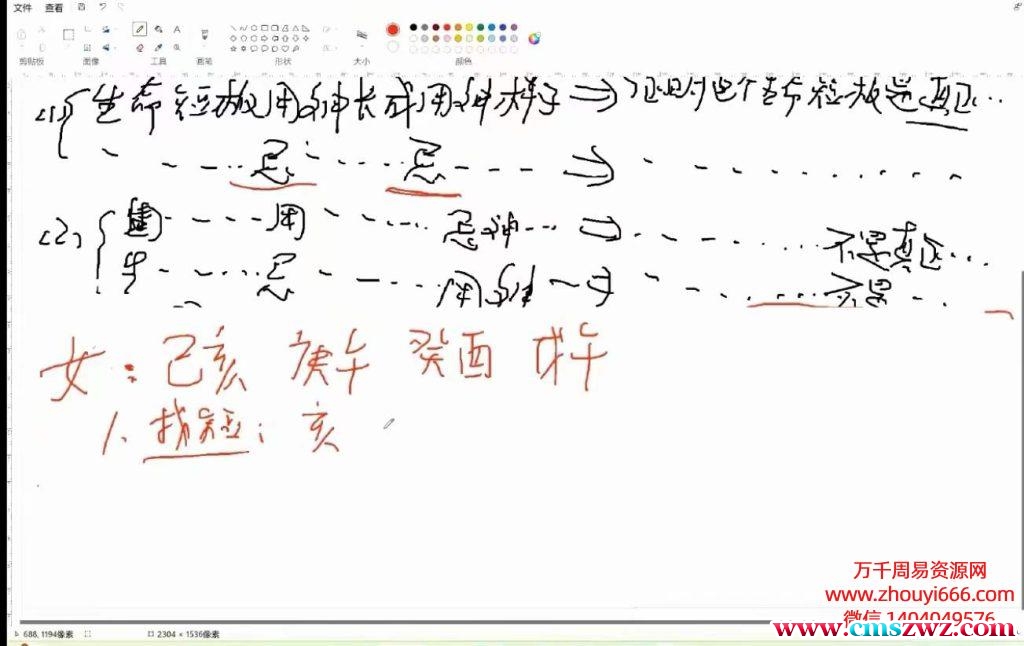 文件 查看
剪贴板 图像 工具 画笔 形状 大小 颜色
(1) 生命短板用神长成用神样子 ⇒ 说明这个生命短板是真正…
忌 忌 ⇒
(2) 用 忌神 ⇒ 不是真正…
生 忌 用神 ⇒ 不是
女:己亥 庚午 癸酉 戊午
1、找短:亥
万千周易资源网
www.zhouyi666.com
微信 1404049576
www.cmszwz.com
688, 1194像素 2304 × 1536像素